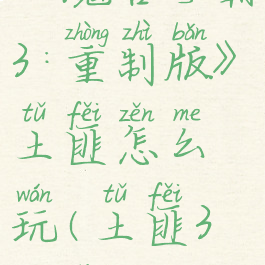 3:重制版》
zhòng zhì bǎn
土匪怎么
tǔ fěi zěn me
玩(土匪3
wán tǔ fěi